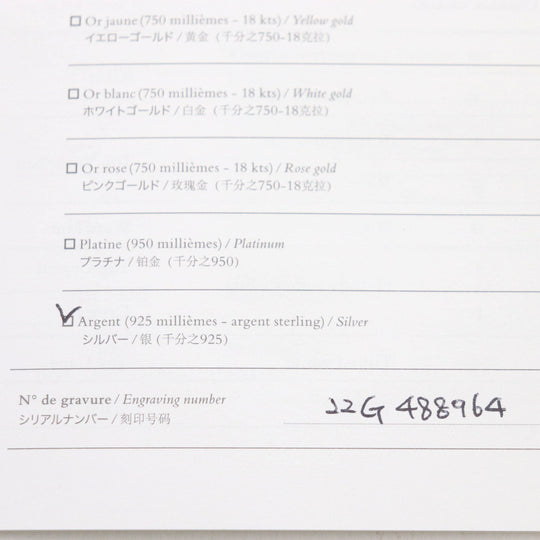 Or jaune (750 millièmes - 18 kts) / Yellow gold
イエローゴールド / 黄金 (千分之750-18克拉)
Or blanc (750 millièmes - 18 kts) / White gold
ホワイトゴールド / 白金 (千分之750-18克拉)
Or rose (750 millièmes - 18 kts) / Rose gold
ピンクゴールド / 玫瑰金 (千分之750-18克拉)
Platine (950 millièmes) / Platinum
プラチナ / 铂金 (千分之950)
Argent (925 millièmes - argent sterling) / Silver
シルバー / 银 (千分之925)
N° de gravure / Engraving number
シリアルナンバー / 刻印号码
22G 488964